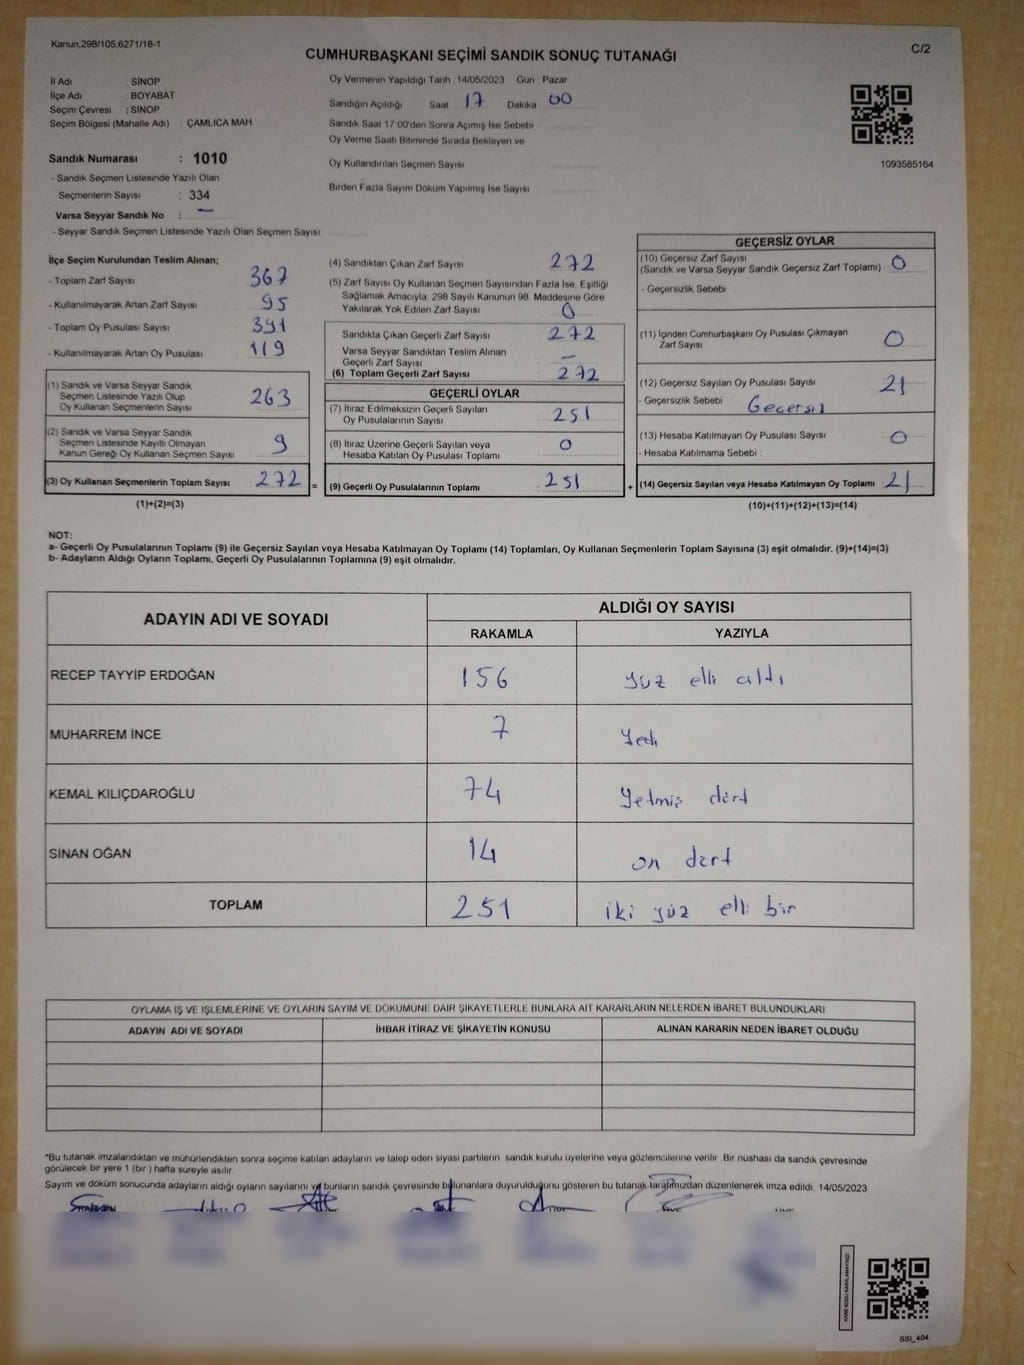 Kanun;298/105,6271/18-1
C/2
CUMHURBAŞKANI SEÇİMİ SANDIK SONUÇ TUTANAĞI
İl Adı SİNOP
İlçe Adı BOYABAT
Seçim Çevresi : SİNOP
Seçim Bölgesi (Mahalle Adı) : ÇAMLICA MAH.
Oy Vermenin Yapıldığı Tarih 14/05/2023 Gün : Pazar
Sandığın Açıldığı Saat 17 Dakika 00
Sandık Saat 17:00'den Sonra Açımış İse Sebebi
Oy Verme Saati Bitiminde Sırada Bekleyen ve
Oy Kullandırılan Seçmen Sayısı
Birden Fazla Sayım Döküm Yapılmış İse Sayısı
1093585164
Sandık Numarası : 1010
- Sandık Seçmen Listesinde Yazılı Olan
Seçmenlerin Sayısı : 334
Varsa Seyyar Sandık No : —
- Seyyar Sandık Seçmen Listesinde Yazılı Olan Seçmen Sayısı
İlçe Seçim Kurulundan Teslim Alınan;
- Toplam Zarf Sayısı 367
- Kullanılmayarak Artan Zarf Sayısı 95
- Toplam Oy Pusulası Sayısı 391
- Kullanılmayarak Artan Oy Pusulası 119
(1) Sandık ve Varsa Seyyar Sandık
Seçmen Listesinde Yazılı Olup
Oy Kullanan Seçmenlerin Sayısı 263
(2) Sandık ve Varsa Seyyar Sandık
Seçmen Listesinde Kayıtlı Olmayan
Kanun Gereği Oy Kullanan Seçmen Sayısı 9
(3) Oy Kullanan Seçmenlerin Toplam Sayısı 272 =
(1)+(2)=(3)
(4) Sandıktan Çıkan Zarf Sayısı 272
(5) Zarf Sayısı Oy Kullanan Seçmen Sayısından Fazla İse, Eşitliği
Sağlamak Amacıyla, 298 Sayılı Kanunun 98. Maddesine Göre
Yakılarak Yok Edilen Zarf Sayısı 0
Sandıkta Çıkan Geçerli Zarf Sayısı 272
Varsa Seyyar Sandıktan Teslim Alınan
Geçerli Zarf Sayısı —
(6) Toplam Geçerli Zarf Sayısı 272
GEÇERLİ OYLAR
(7) İtiraz Edilmeksizin Geçerli Sayılan
Oy Pusulalarının Sayısı 251
(8) İtiraz Üzerine Geçerli Sayılan veya
Hesaba Katılan Oy Pusulası Toplamı 0
(9) Geçerli Oy Pusulalarının Toplamı 251 +
GEÇERSİZ OYLAR
(10) Geçersiz Zarf Sayısı
(Sandık ve Varsa Seyyar Sandık Geçersiz Zarf Toplamı) 0
- Geçersizlik Sebebi :
(11) İçinden Cumhurbaşkanı Oy Pusulası Çıkmayan
Zarf Sayısı 0
(12) Geçersiz Sayılan Oy Pusulası Sayısı 21
- Geçersizlik Sebebi : Geçersiz
(13) Hesaba Katılmayan Oy Pusulası Sayısı 0
- Hesaba Katılmama Sebebi :
(14) Geçersiz Sayılan veya Hesaba Katılmayan Oy Toplamı 21
(10)+(11)+(12)+(13)=(14)
NOT:
a- Geçerli Oy Pusulalarının Toplamı (9) ile Geçersiz Sayılan veya Hesaba Katılmayan Oy Toplamı (14) Toplamları, Oy Kullanan Seçmenlerin Toplam Sayısına (3) eşit olmalıdır. (9)+(14)=(3)
b- Adayların Aldığı Oyların Toplamı, Geçerli Oy Pusulalarının Toplamına (9) eşit olmalıdır.
ADAYIN ADI VE SOYADI
ALDIĞI OY SAYISI
RAKAMLA YAZIYLA
RECEP TAYYİP ERDOĞAN 156 yüz elli altı
MUHARREM İNCE 7 Yedi
KEMAL KILIÇDAROĞLU 74 Yetmiş dört
SİNAN OĞAN 14 on dört
TOPLAM 251 iki yüz elli bir
OYLAMA İŞ VE İŞLEMLERİNE VE OYLARIN SAYIM VE DÖKÜMÜNE DAİR ŞİKAYETLERLE BUNLARA AİT KARARLARIN NELERDEN İBARET BULUNDUKLARI
ADAYIN ADI VE SOYADI İHBAR İTİRAZ VE ŞİKAYETİN KONUSU ALINAN KARARIN NEDEN İBARET OLDUĞU
*Bu tutanak imzalandıktan ve mühürlendikten sonra seçime katılan adayların ve talep eden siyasi partilerin sandık kurulu üyelerine veya gözlemcilerine verilir. Bir nüshası da sandık çevresinde
görülecek bir yere 1 (bir ) hafta süreyle asılır.
Sayım ve döküm sonucunda adayların aldığı oyların sayılarını ve bunların sandık çevresinde bulunanlara duyurulduğunu gösteren bu tutanak tarafımızdan düzenlenerek imza edildi. 14/05/2023
KARE KODU KARALAMAYINIZ!
SSI_404